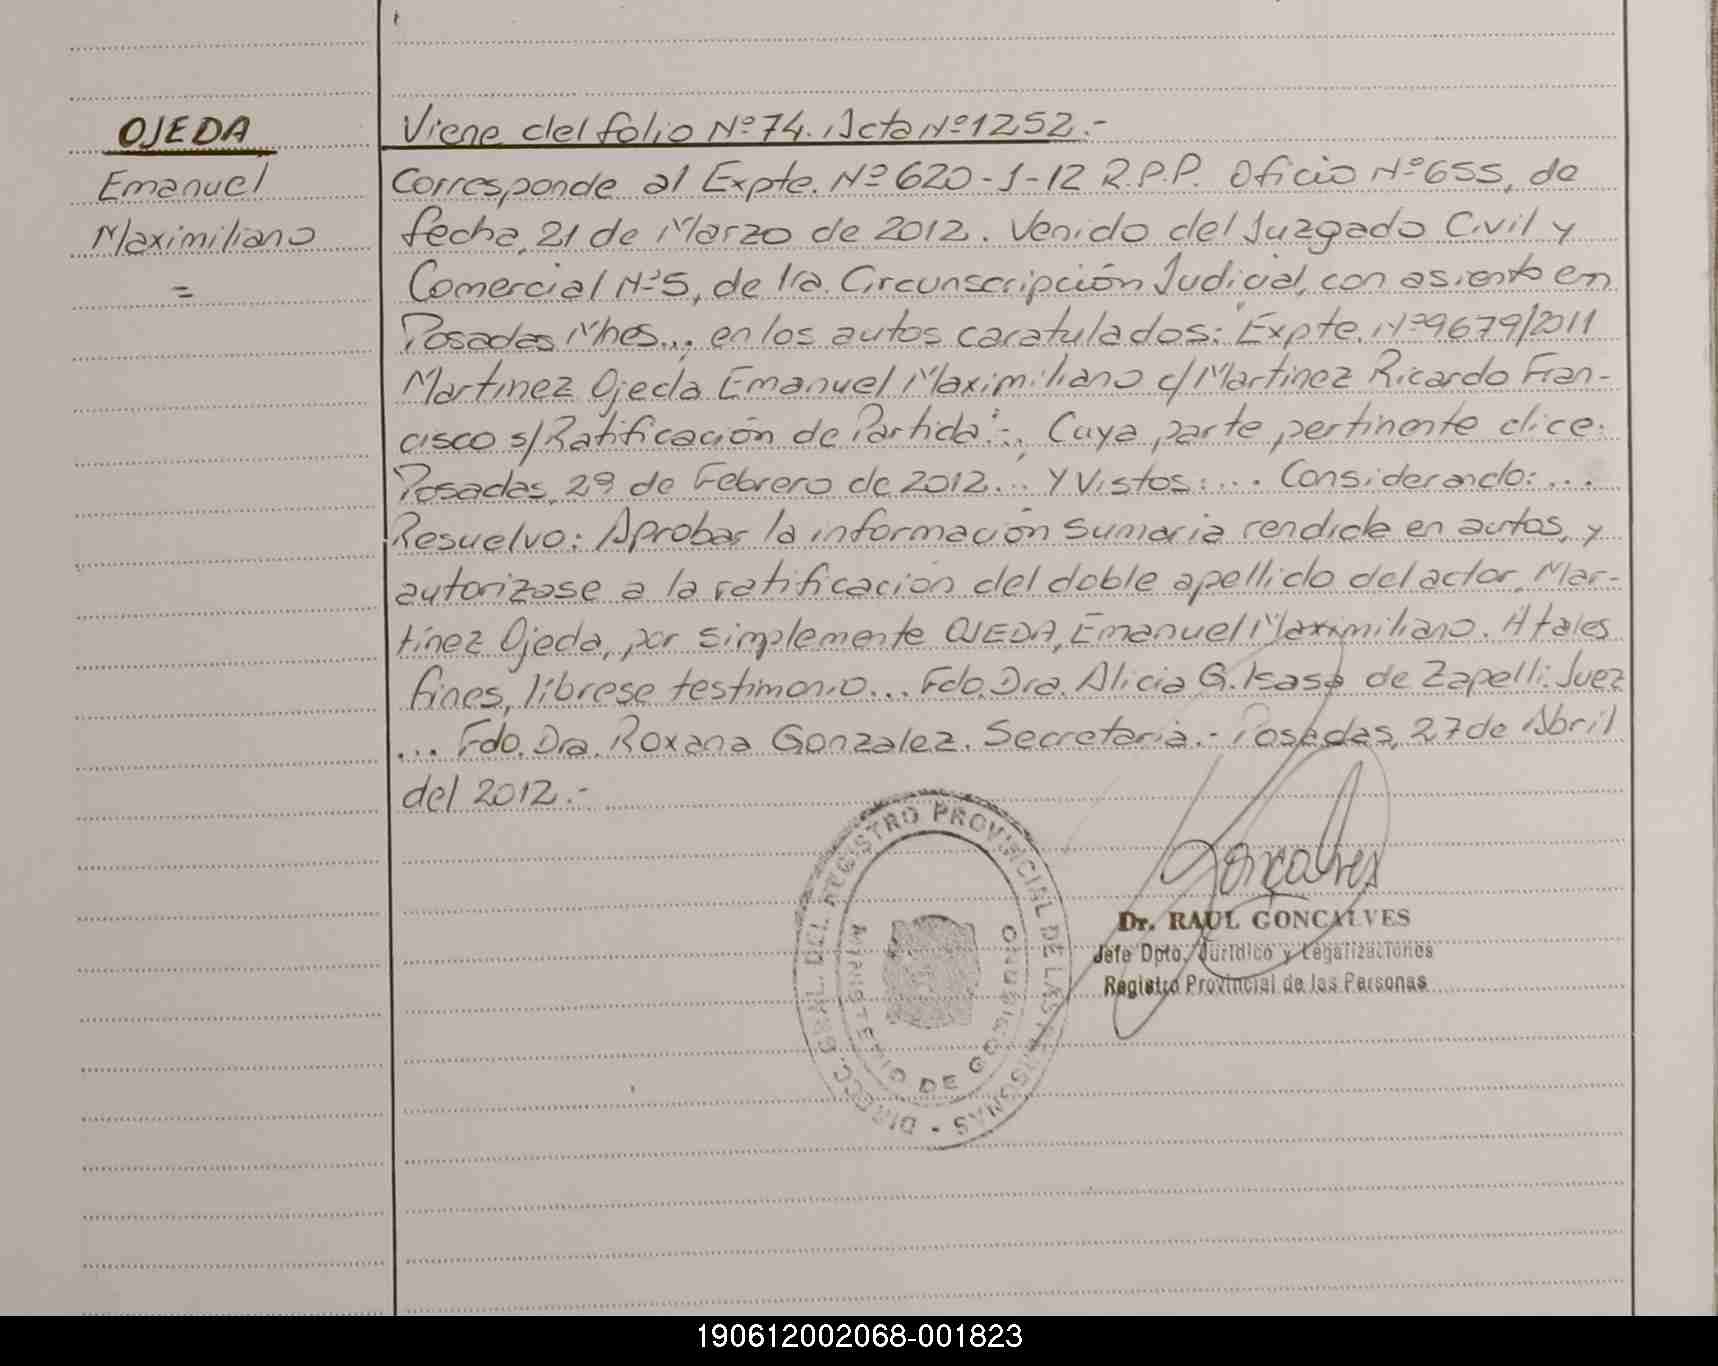 OJEDA
Emanuel
Maximiliano
=
Viene del folio Nº74. Acta Nº1252.-
Corresponde al Expte. Nº 620-1-12 R.P.P. Oficio Nº655, de
fecha, 21 de Marzo de 2012. Venido del Juzgado Civil y
Comercial Nº5, de 1ra. Circunscripción Judicial, con asiento en
Posadas Mnes... en los autos caratulados: "Expte. Nº9679/2011
Martinez Ojeda Emanuel Maximiliano c/ Martinez Ricardo Fran-
cisco s/ Ratificación de Partida".-, Cuya parte pertinente dice:
Posadas, 29 de Febrero de 2012... Y Vistos:.... Considerando:...
Resuelvo: Aprobar la información sumaria rendida en autos, y
autorizase a la ratificación del doble apellido del actor, Mar-
tínez Ojeda, por simplemente OJEDA, Emanuel Maximiliano. A tales
fines, líbrese testimonio... Fdo. Dra. Alicia G. Isasa de Zapelli. Juez
... Fdo. Dra. Roxana Gonzalez. Secretaria.- Posadas, 27 de Abril
del 2012.-
DIRECC. GRAL. DEL REGISTRO PROVINCIAL DE LAS PERSONAS -
MINISTERIO DE GOBIERNO
Goncalves
Dr. RAUL GONCALVES
Jefe Dpto. Jurídico y Legalizaciones
Registro Provincial de las Personas
190612002068-001823